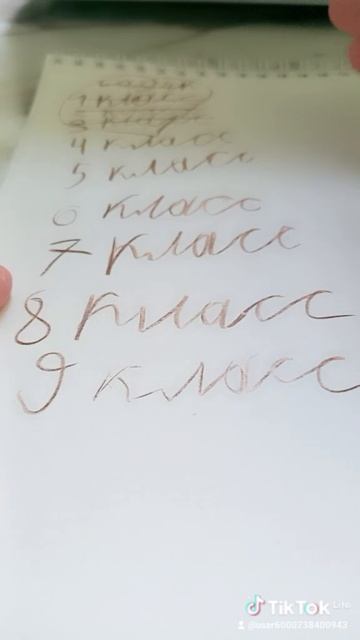 1 класс
4 класс
5 класс
6 класс
7 класс
8 класс
9 класс
TikTok Lite
@user6000738400943